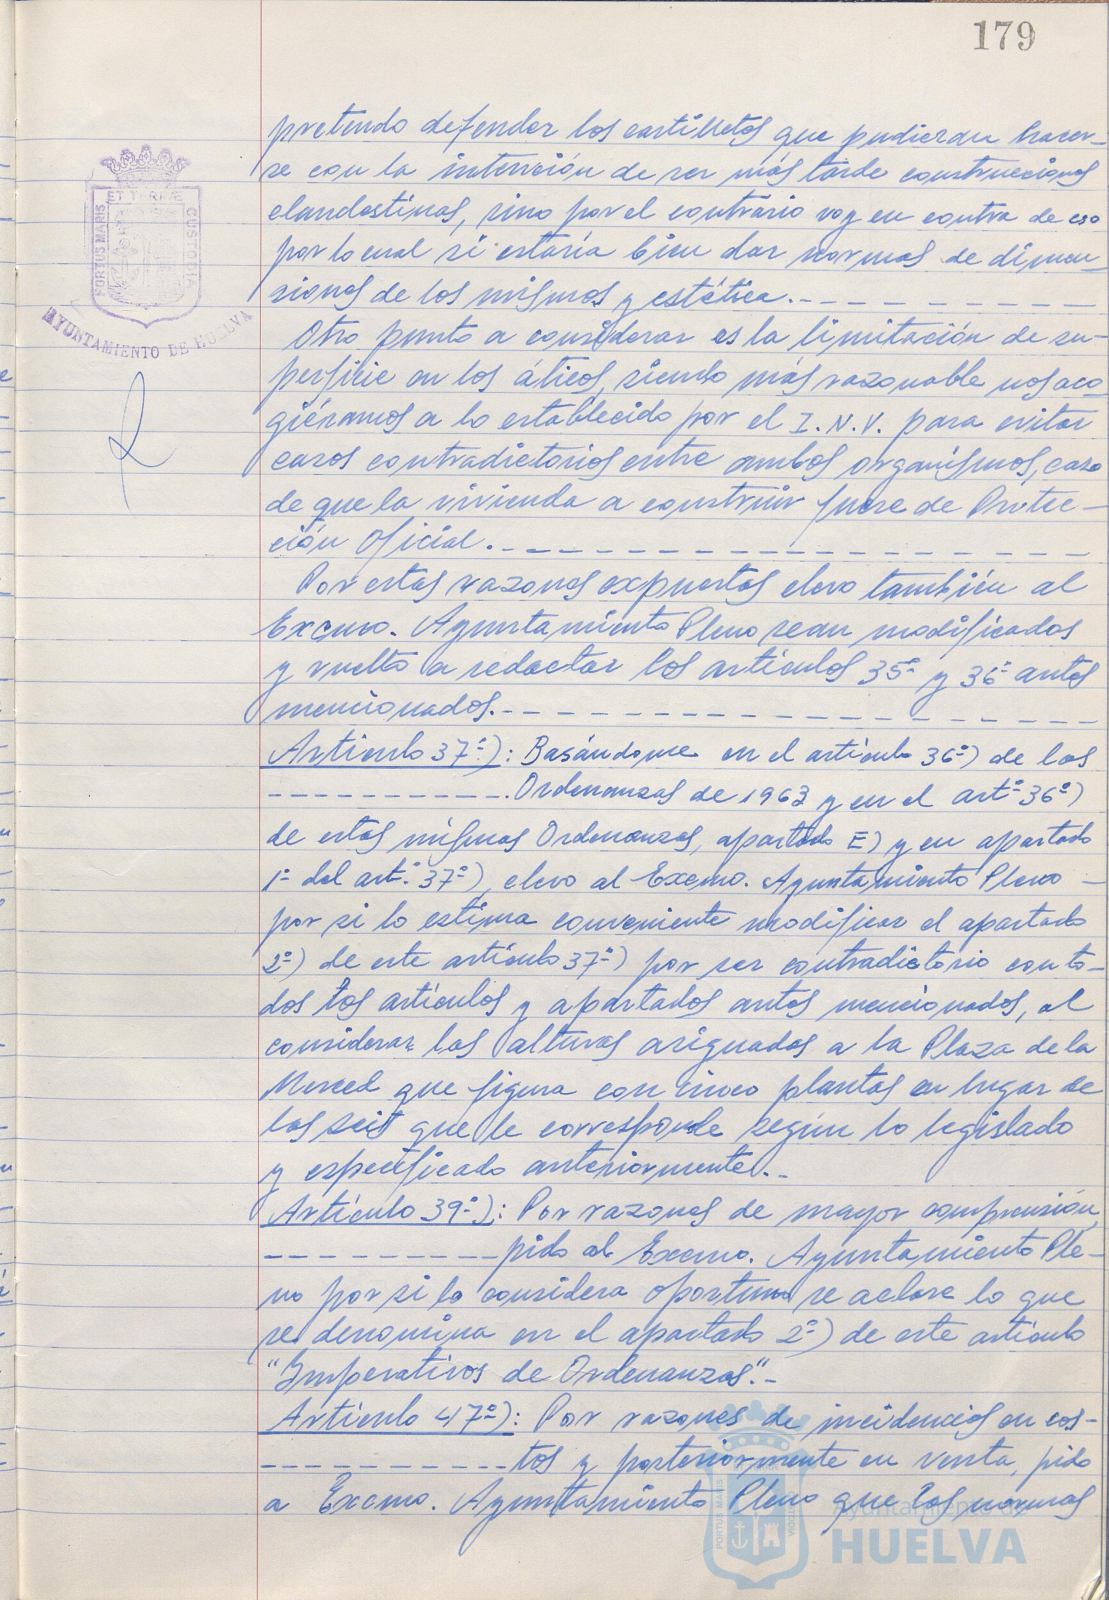 179
pretendo defender los castilletes que pudieran hacer-
se con la intención de ser más tarde construcciones
clandestinas, sino por el contrario voy en contra de eso
por lo cual si estaría bien dar normas de dimen-
siones de los mismos y estética.
Otro punto a considerar es la limitación de su-
perficie en los áticos, siendo más razonable nos aco-
giéramos a lo establecido por el I.N.V. para evitar
casos contradictorios entre ambos organismos, caso
de que la vivienda a construir fuese de Protec-
ción Oficial.
Por estas razones expuestas elevo también al
Excmo. Ayuntamiento Pleno sean modificados
y vuelto a redactar los artículos 35º y 36º antes
mencionados.
Artículo 37º): Basándome en el artículo 36º) de las
Ordenanzas de 1963 y en el artº 36º)
de estas mismas Ordenanzas, apartado E) y en apartado
1º del art.º 37º), elevo al Excmo. Ayuntamiento Pleno
por si lo estima conveniente modificar el apartado
2º) de este artículo 37º) por ser contradictorio con to-
dos los artículos y apartados antes mencionados, al
considerar las alturas asignados a la Plaza de la
Merced que figura con cinco plantas en lugar de
las seis que le corresponde según lo legislado
y especificado anteriormente.
Artículo 39º): Por razones de mayor comprensión,
pido al Excmo. Ayuntamiento Ple-
no por si lo considera oportuno se aclare lo que
se denomina en el apartado 2º) de este artículo
"Imperativos de Ordenanzas".
Artículo 47º): Por razones de incidencias en cos-
tos y posteriormente en venta, pido
a Excmo. Ayuntamiento Pleno que las normas
PORTUS MARIS
ET TERRAE
CUSTODIA
AYUNTAMIENTO DE HUELVA
Ayuntamiento de
HUELVA